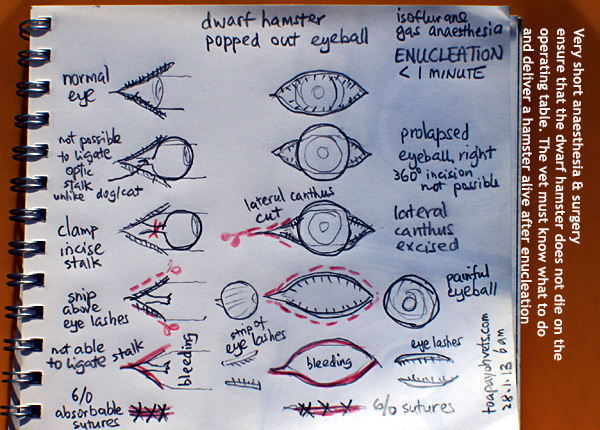 dwarf hamster
popped out eyeball
isoflurane
gas anaesthesia
ENUCLEATION
< 1 MINUTE
normal
eye
not possible
to ligate
optic
stalk
unlike dog/cat
prolapsed
eyeball, right
360° incision
not possible
clamp
incise
stalk
lateral canthus
cut
lateral
canthus
excised
snip
above
eye lashes
painful
eyeball
not able
to ligate
stalk
bleeding
strip of
eye lashes
bleeding
eye lashes
6/0
absorbable
sutures
6/0 sutures
toapayohvets.com
28.1.13 6am
Very short anaesthesia & surgery
ensure that the dwarf hamster does not die on the
operating table. The vet must know what to do
and deliver a hamster alive after enucleation